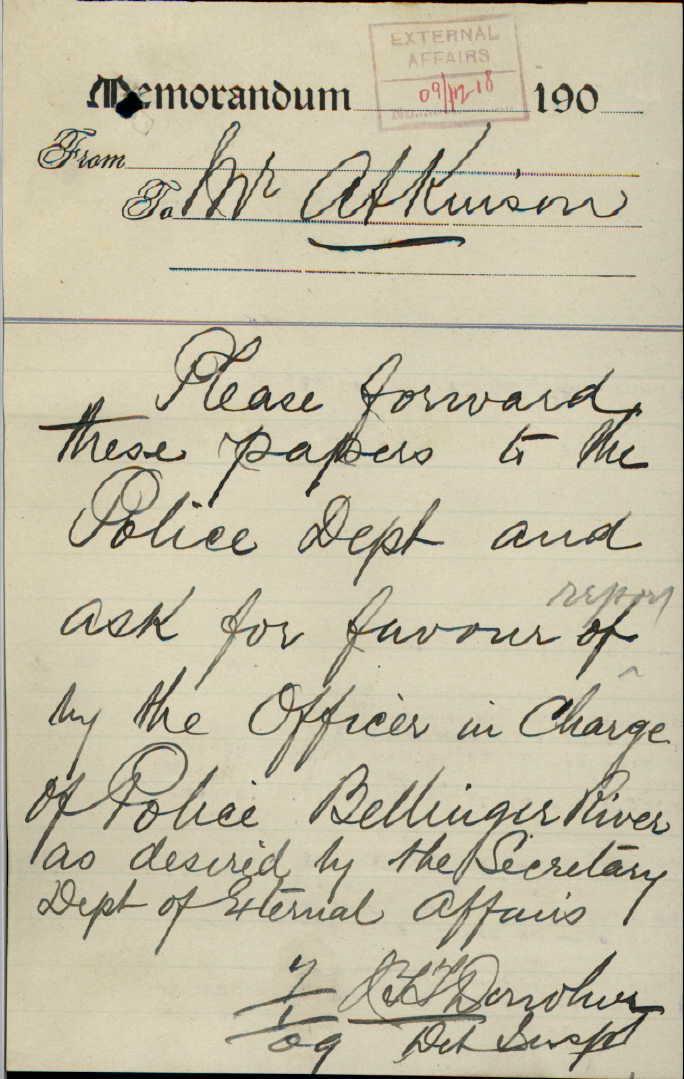 EXTERNAL
AFFAIRS
09/
Memorandum 190
From
To Mr Atkinson
Please forward
these papers to the
Police Dept and
report
ask for favour of
by the Officer in Charge
of Police Bellinger River
as desired by the Secretary
Dept of External Affairs
7
1
09 Det Insp